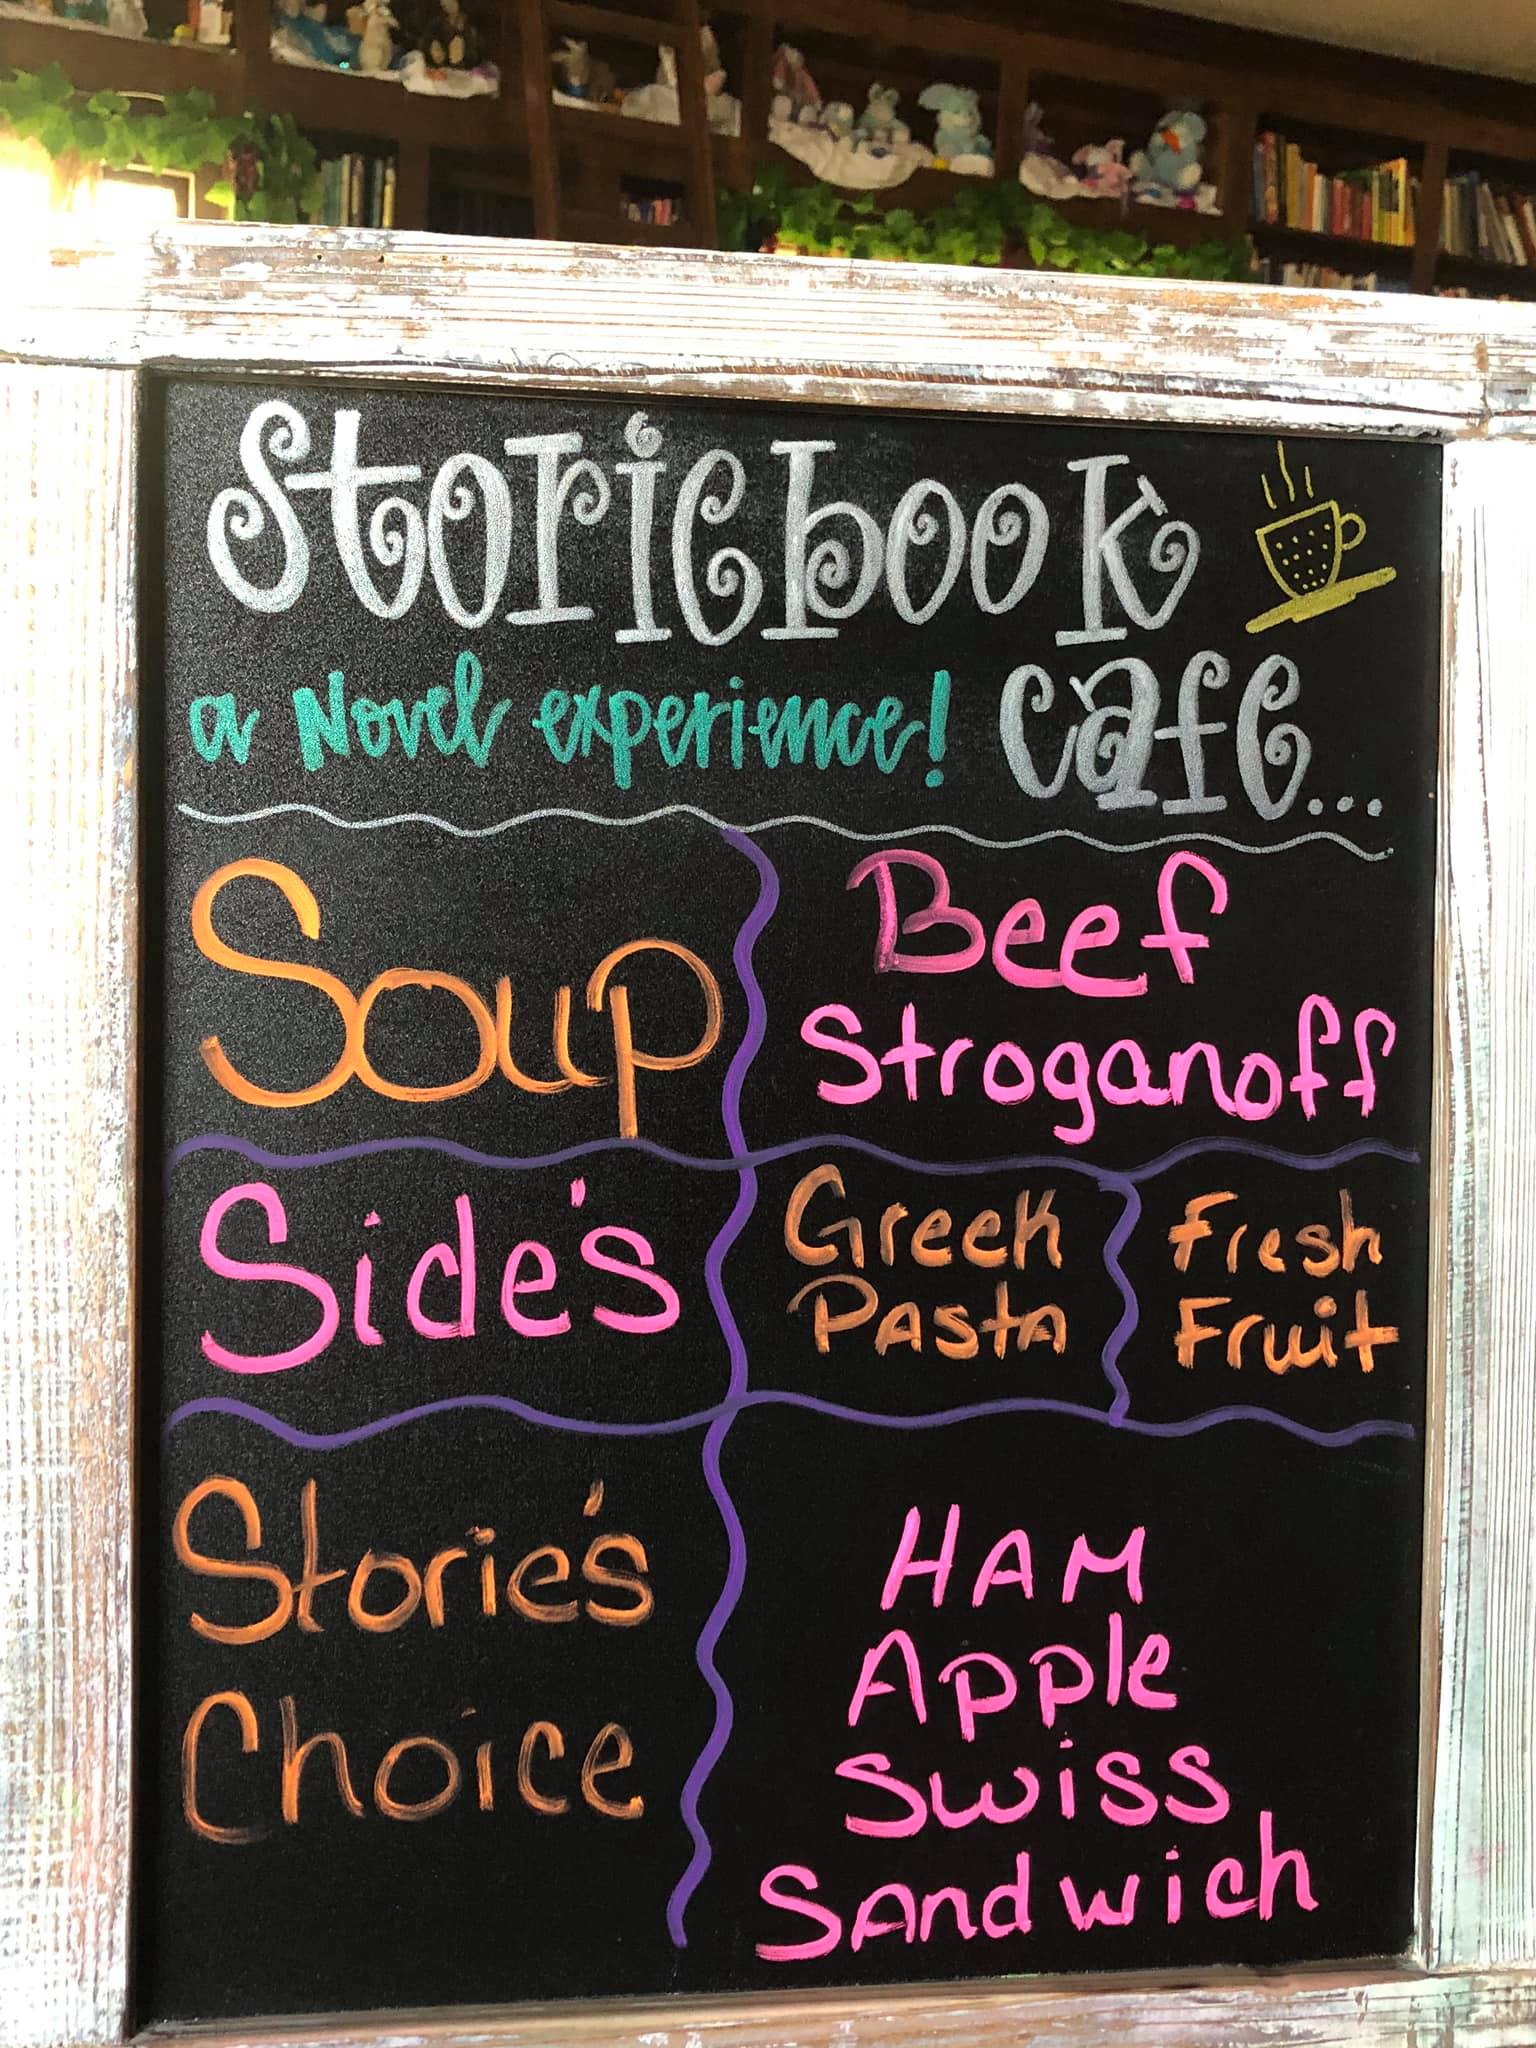 Storiebook
a Novel experience! Cafe...
Soup
Beef
Stroganoff
Side's
Greek
Pasta
Fresh
Fruit
Storie's
Choice
HAM
Apple
Swiss
SAndwich